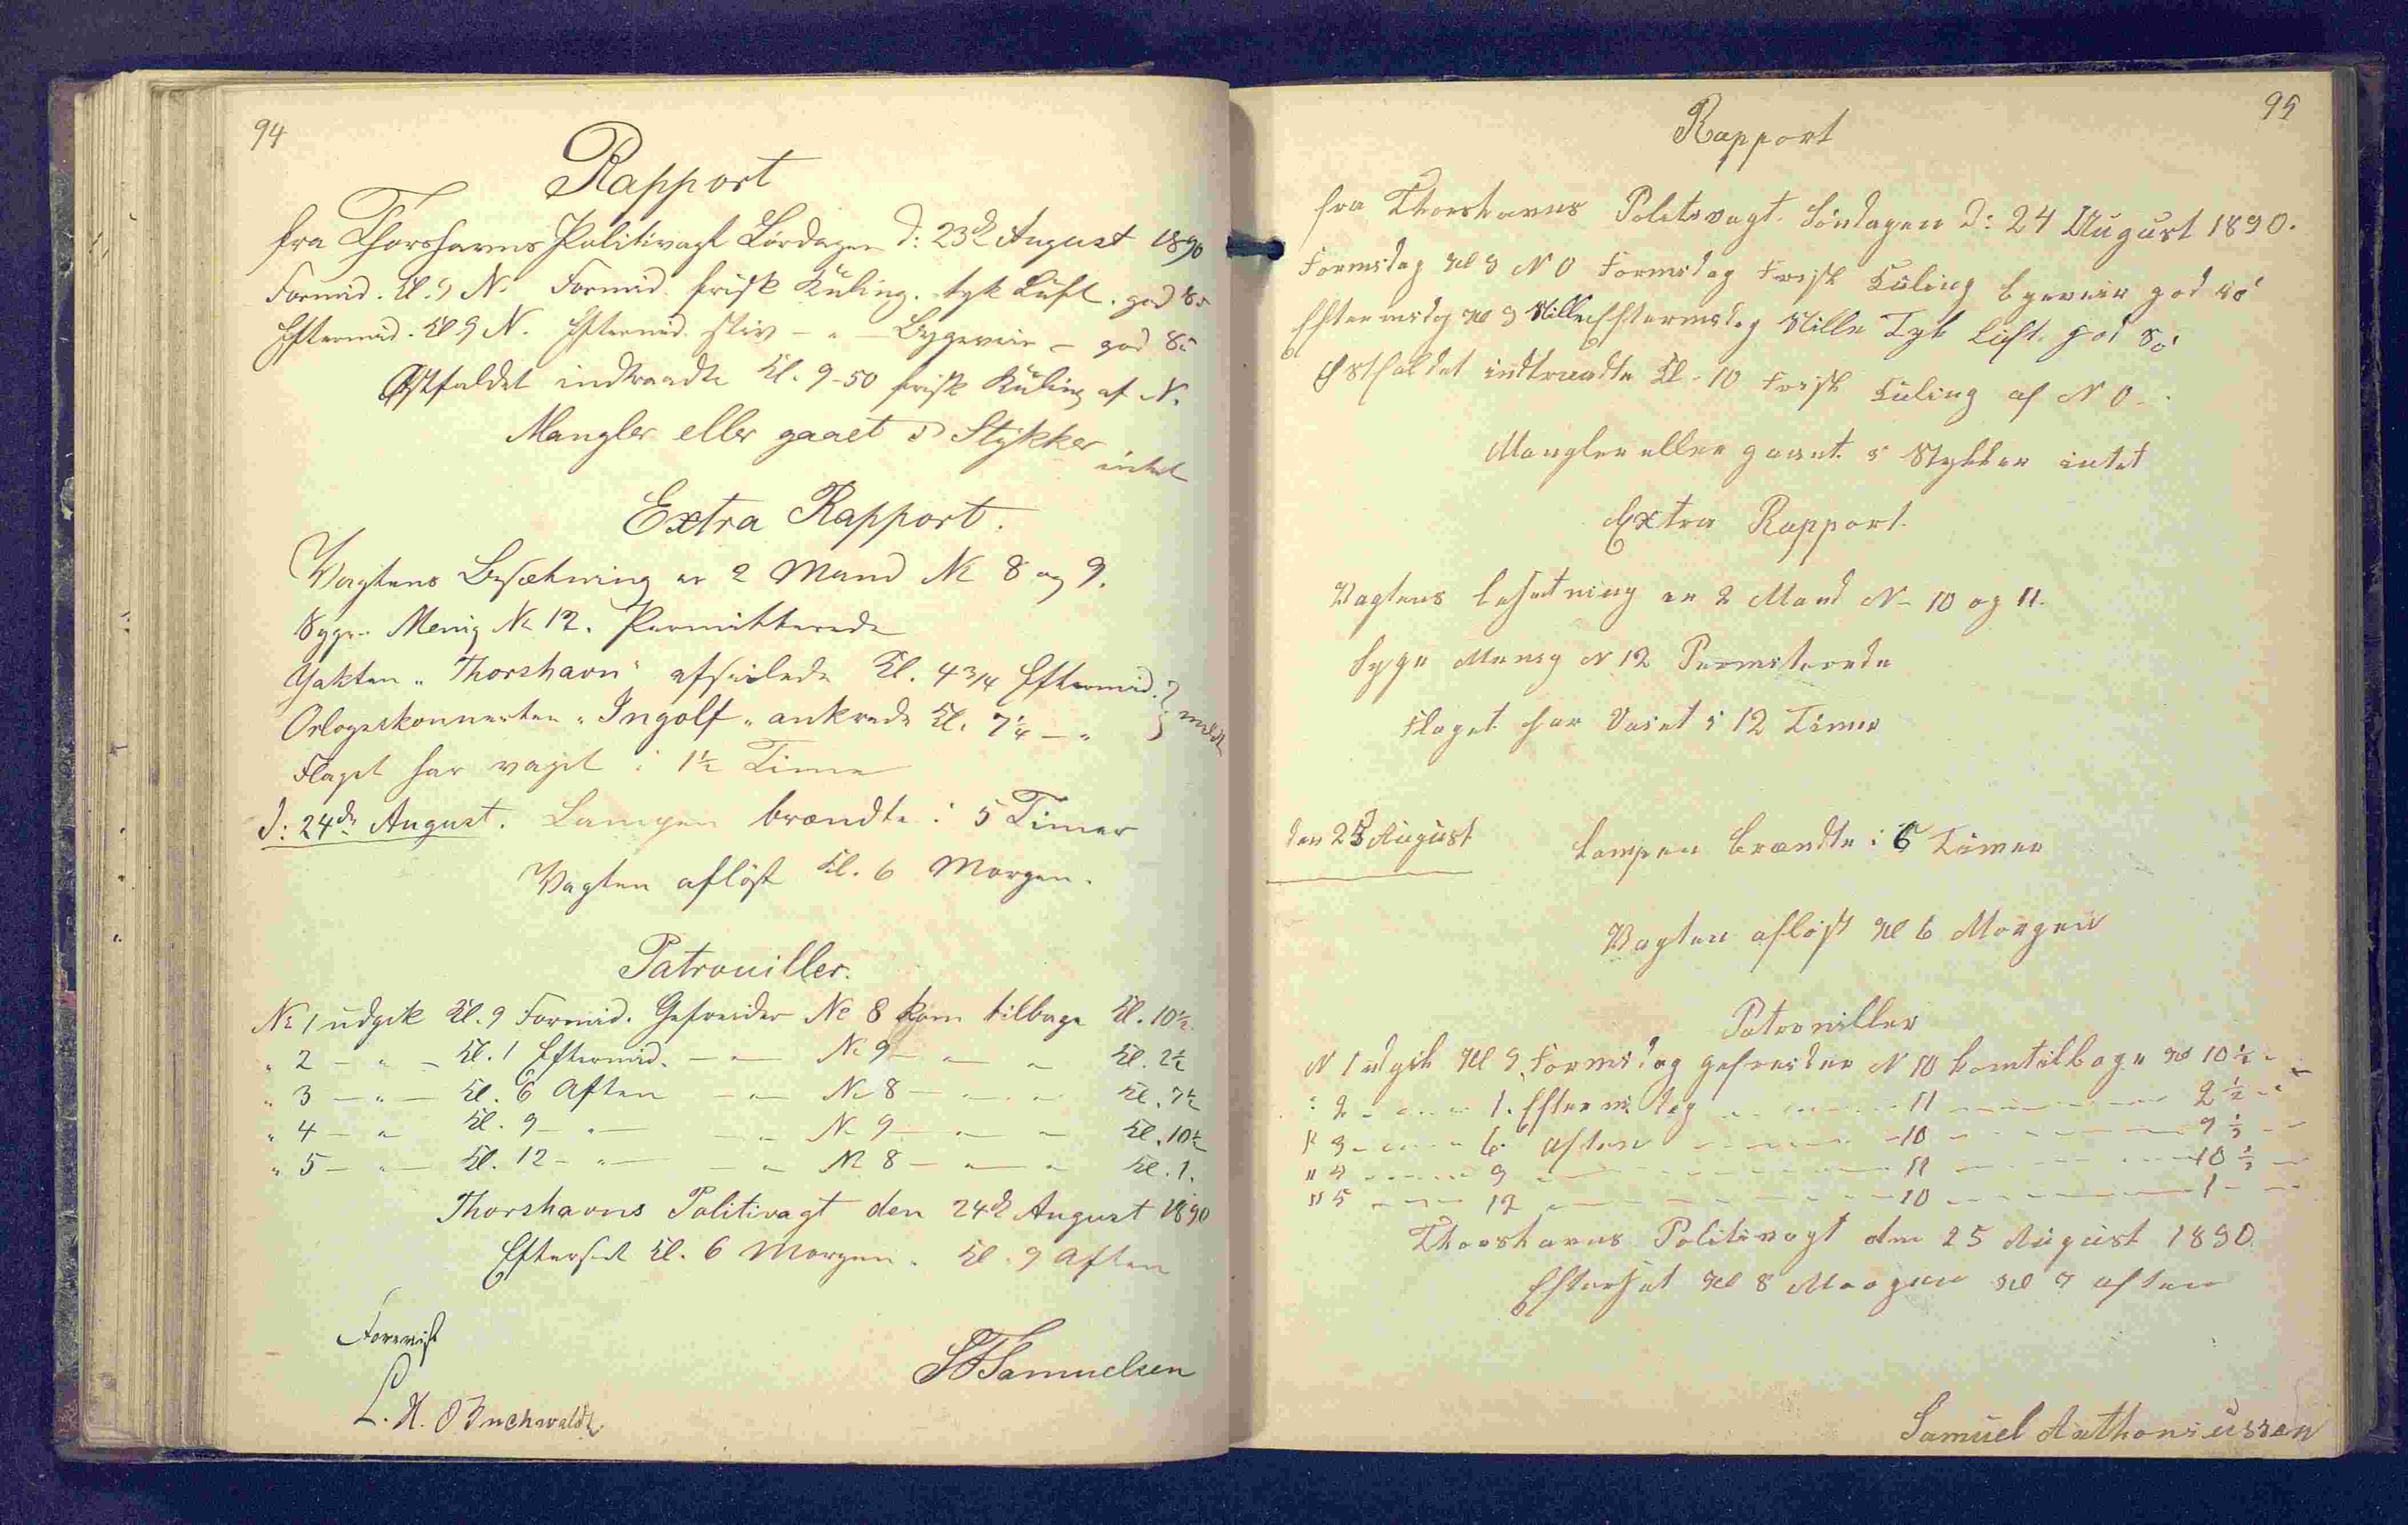 94
Rapport
fra Thorshavns Politivagt Lördagen d: 23de August 1890
Formid. Kl. 9 N. Formid. frisk Kuling. tyk Luft. god Sö
Eftermid. Kl 9 N. Eftermid. stiv — " — Bygeveir — god Sö
Østfaldet indtraadte Kl. 9-50 frisk Kuling af N.
Mangler eller gaaet i Stykker intet
Extra Rapport.
Vagtens Besætning er 2 Mand No 8 og 9.
Syge. Menig No 12. Permitterede
Jakten "Thorshavn" afseilede Kl. 4 3/4 Eftermid.
Orlogsskonnerten "Ingolf" ankrede Kl. 7 1/4 — "
Flaget har vajet i 1 1/2 Time
d: 24de August. Lampen brændte i 5 Timer
Vagten aflöst Kl. 6 Morgen.
Patrouiller.
No 1 udgik Kl. 9 Formid. Gefreider No 8 kom tilbage Kl. 10 1/2
" 2 — " — Kl. 1 Eftermid. — " — No 9 — " — " Kl. 2 1/2
" 3 — " — Kl. 6 Aften — " — No 8 — " — " Kl. 7 1/2
" 4 — " Kl. 9 — " — — " No 9 — " — " Kl. 10 1/2
" 5 — " — Kl. 12 — " — — " No 8 — " — " Kl. 1.
Thorshavns Politivagt den 24de August 1890
Efterset Kl. 6 Morgen. Kl. 9 Aften
Forevist
L. H. Buchwaldt
Samuelsen
95
Rapport
fra Thorshavns Politivagt. Söndagen d: 24 August 1890.
Formidag Kl 9 N O Formidag Frisk Kuling bygeveir god sö
Eftermidag Kl 9 Stille Eftermidag Stille Tyk Luft. god Sö
Østfaldet indtraadte Kl. 10 Frisk Kuling af N O.
Mangler eller gaaet i Stykker intet
Extra Rapport.
Vagtens besetning er 2 Mand N 10 og 11.
Syge Menig N 12 Permiterede
Flaget har Vaiet i 12 Timer
den 25 August Lampen brændte i 6 Timer
Vagten aflöst Kl 6 Morgen
Patroniller
N 1 udgik Kl 9 Formidag gefreider N 10 komtilbage Kl 10 1/2
" 2 — " — 1. Eftermidag — " — 11 — " — 2 1/2
" 3 — " — 6 Aften — " — 10 — " — 7 1/2
" 4 — " — 9 — " — 11 — " — 10 1/2
" 5 — " — 12 — " — 10 — " — 1
Thorshavns Politivagt den 25 August 1890
Efterset Kl 8 Morgen Kl 9 aften
Samuel Anthoniussen